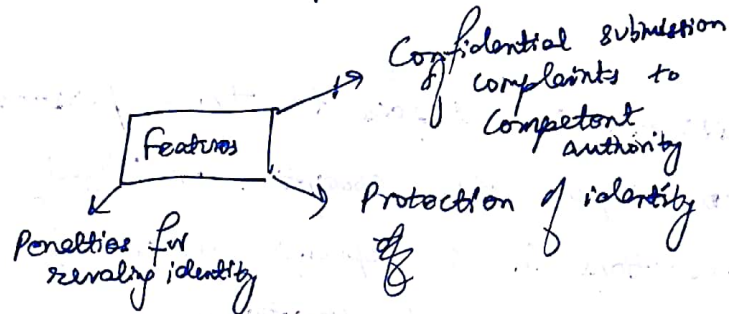 Confidential submission
of complaints to
Competent
Authority
Features
Protection of identity
of
Penalties for
revealing identity